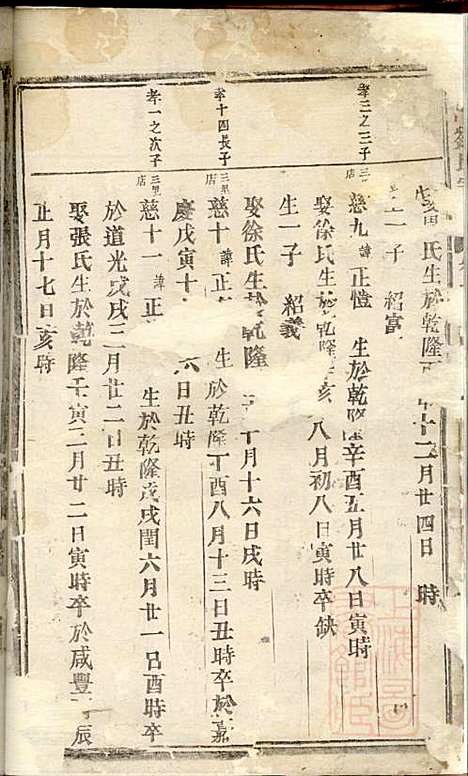 氏生於乾隆 年十二月廿四日 時
一子 紹富
孝三之三子
三里店
慈九 諱正愷 生於乾隆辛酉五月廿八日寅時
娶徐氏生於乾隆 亥八月初八日寅時卒缺
生一子 紹義
孝十四長子
三里店
慈十 諱正 生於乾隆丁酉八月十三日丑時卒於嘉
慶戊寅十 六日丑時
娶徐氏生於乾隆 十月十六日戌時
孝一之次子
三里店
慈十一 諱正 生於乾隆戊戌閏六月廿一日酉時卒
於道光戊戌三月廿二日丑時
娶張氏生於乾隆壬寅二月廿二日寅時卒於咸豐 辰
正月十七日亥時